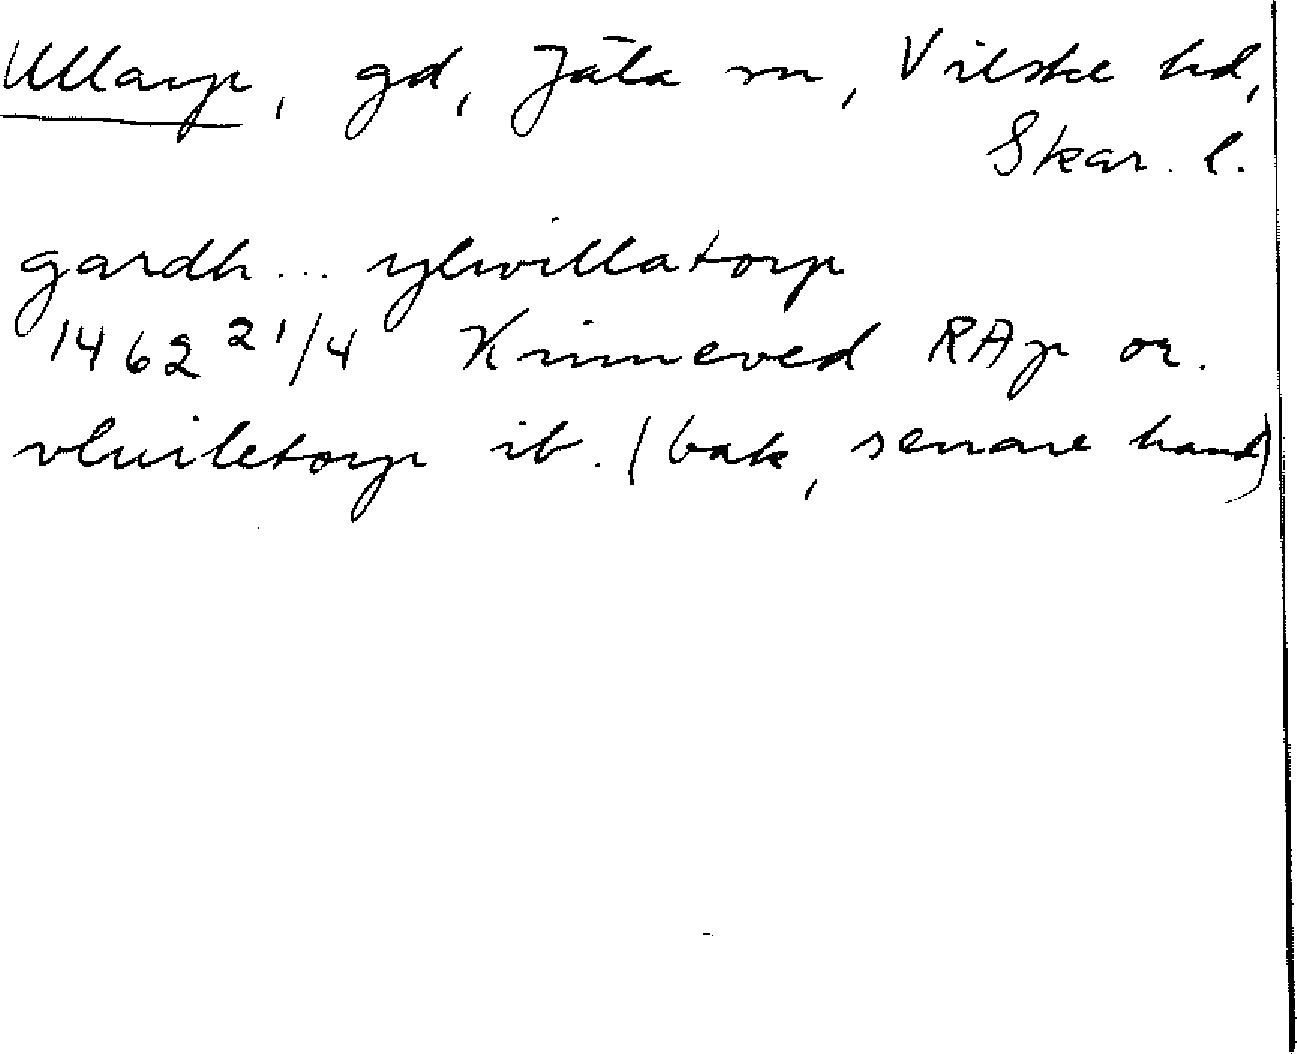 Ullarp, gd, Jäla sn, Vilske hd,
Skar. l.
gardh... ylwillatorp
1462 21/4 Kinneved RAp or.
vluiletorp ib. (bak, senare hand)